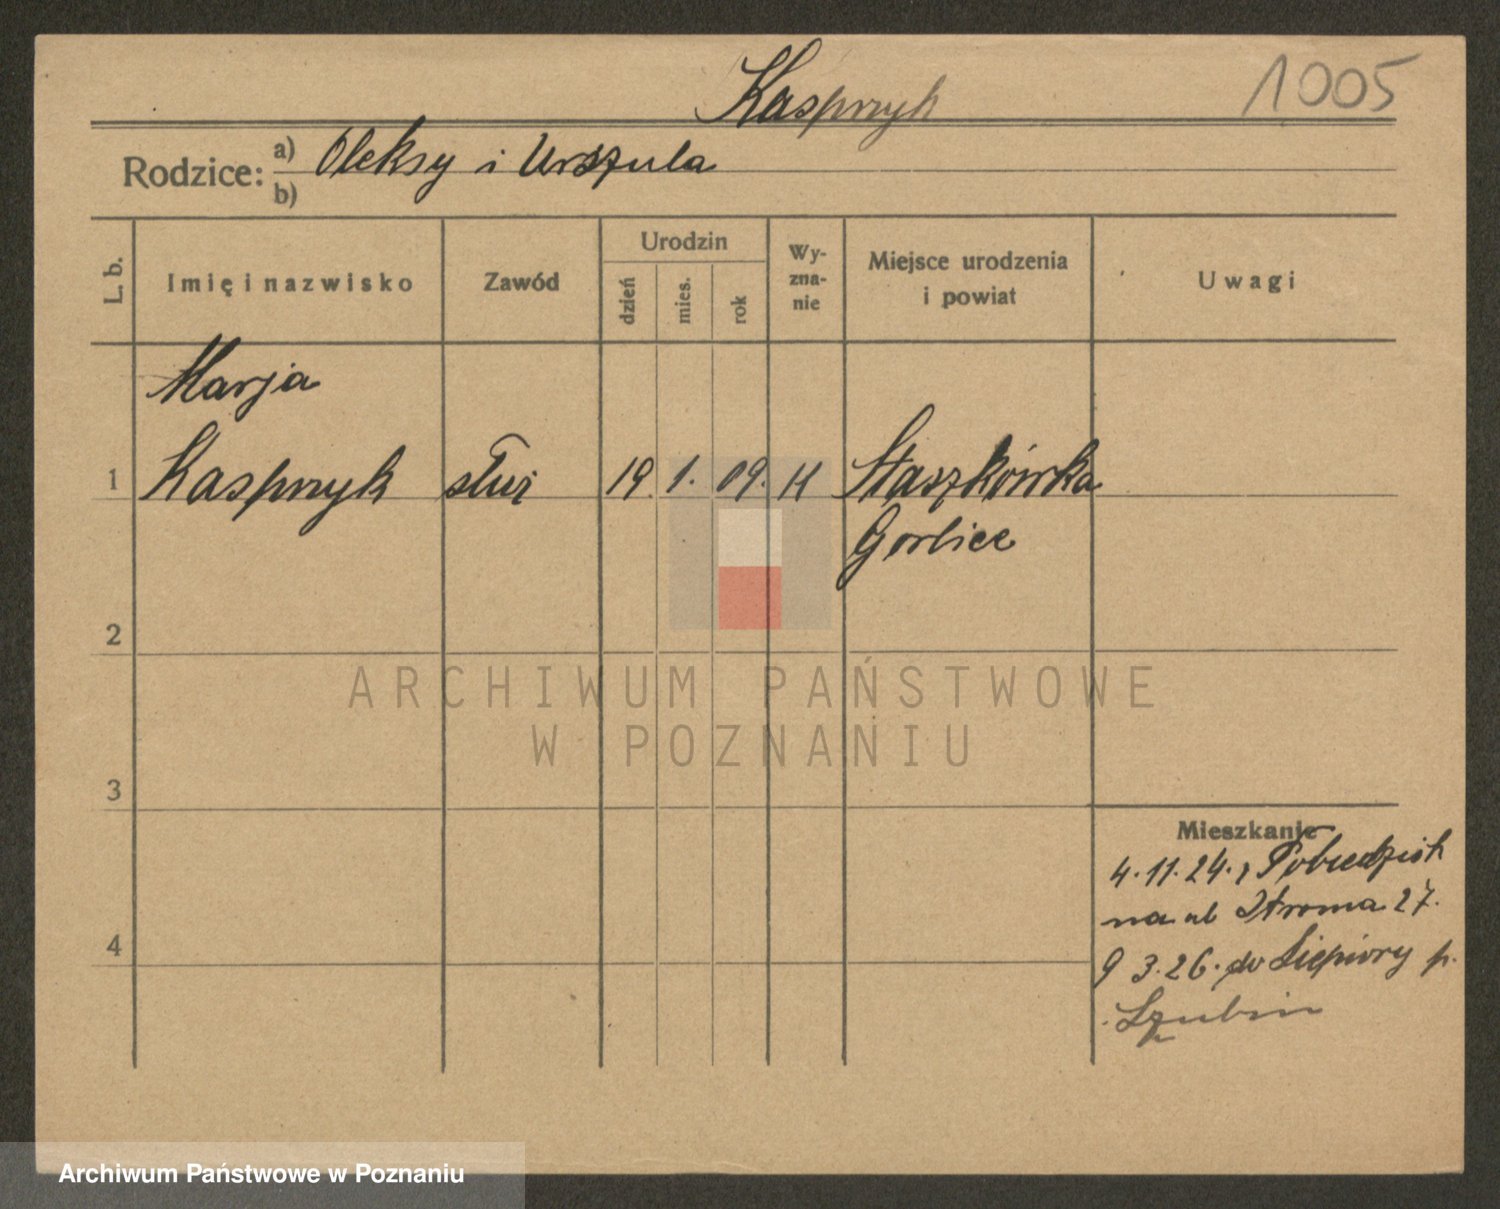 Kasprzyk 1005
Rodzice: a) Oleksy i Urszula
b)
L. b. Imię i nazwisko Zawód Urodzin dzień mies. rok Wy-zna-nie Miejsce urodzenia i powiat Uwagi
Marja
1 Kasprzyk służ 19. 1. 09. K Staszkówka
Gorlice
2
ARCHIWUM PAŃSTWOWE
W POZNANIU
3
Mieszkanie
4. 11. 24. Pobiedzisk
na ul Stroma 27.
4
9 3. 26. do p.
Szubin
Archiwum Państwowe w Poznaniu